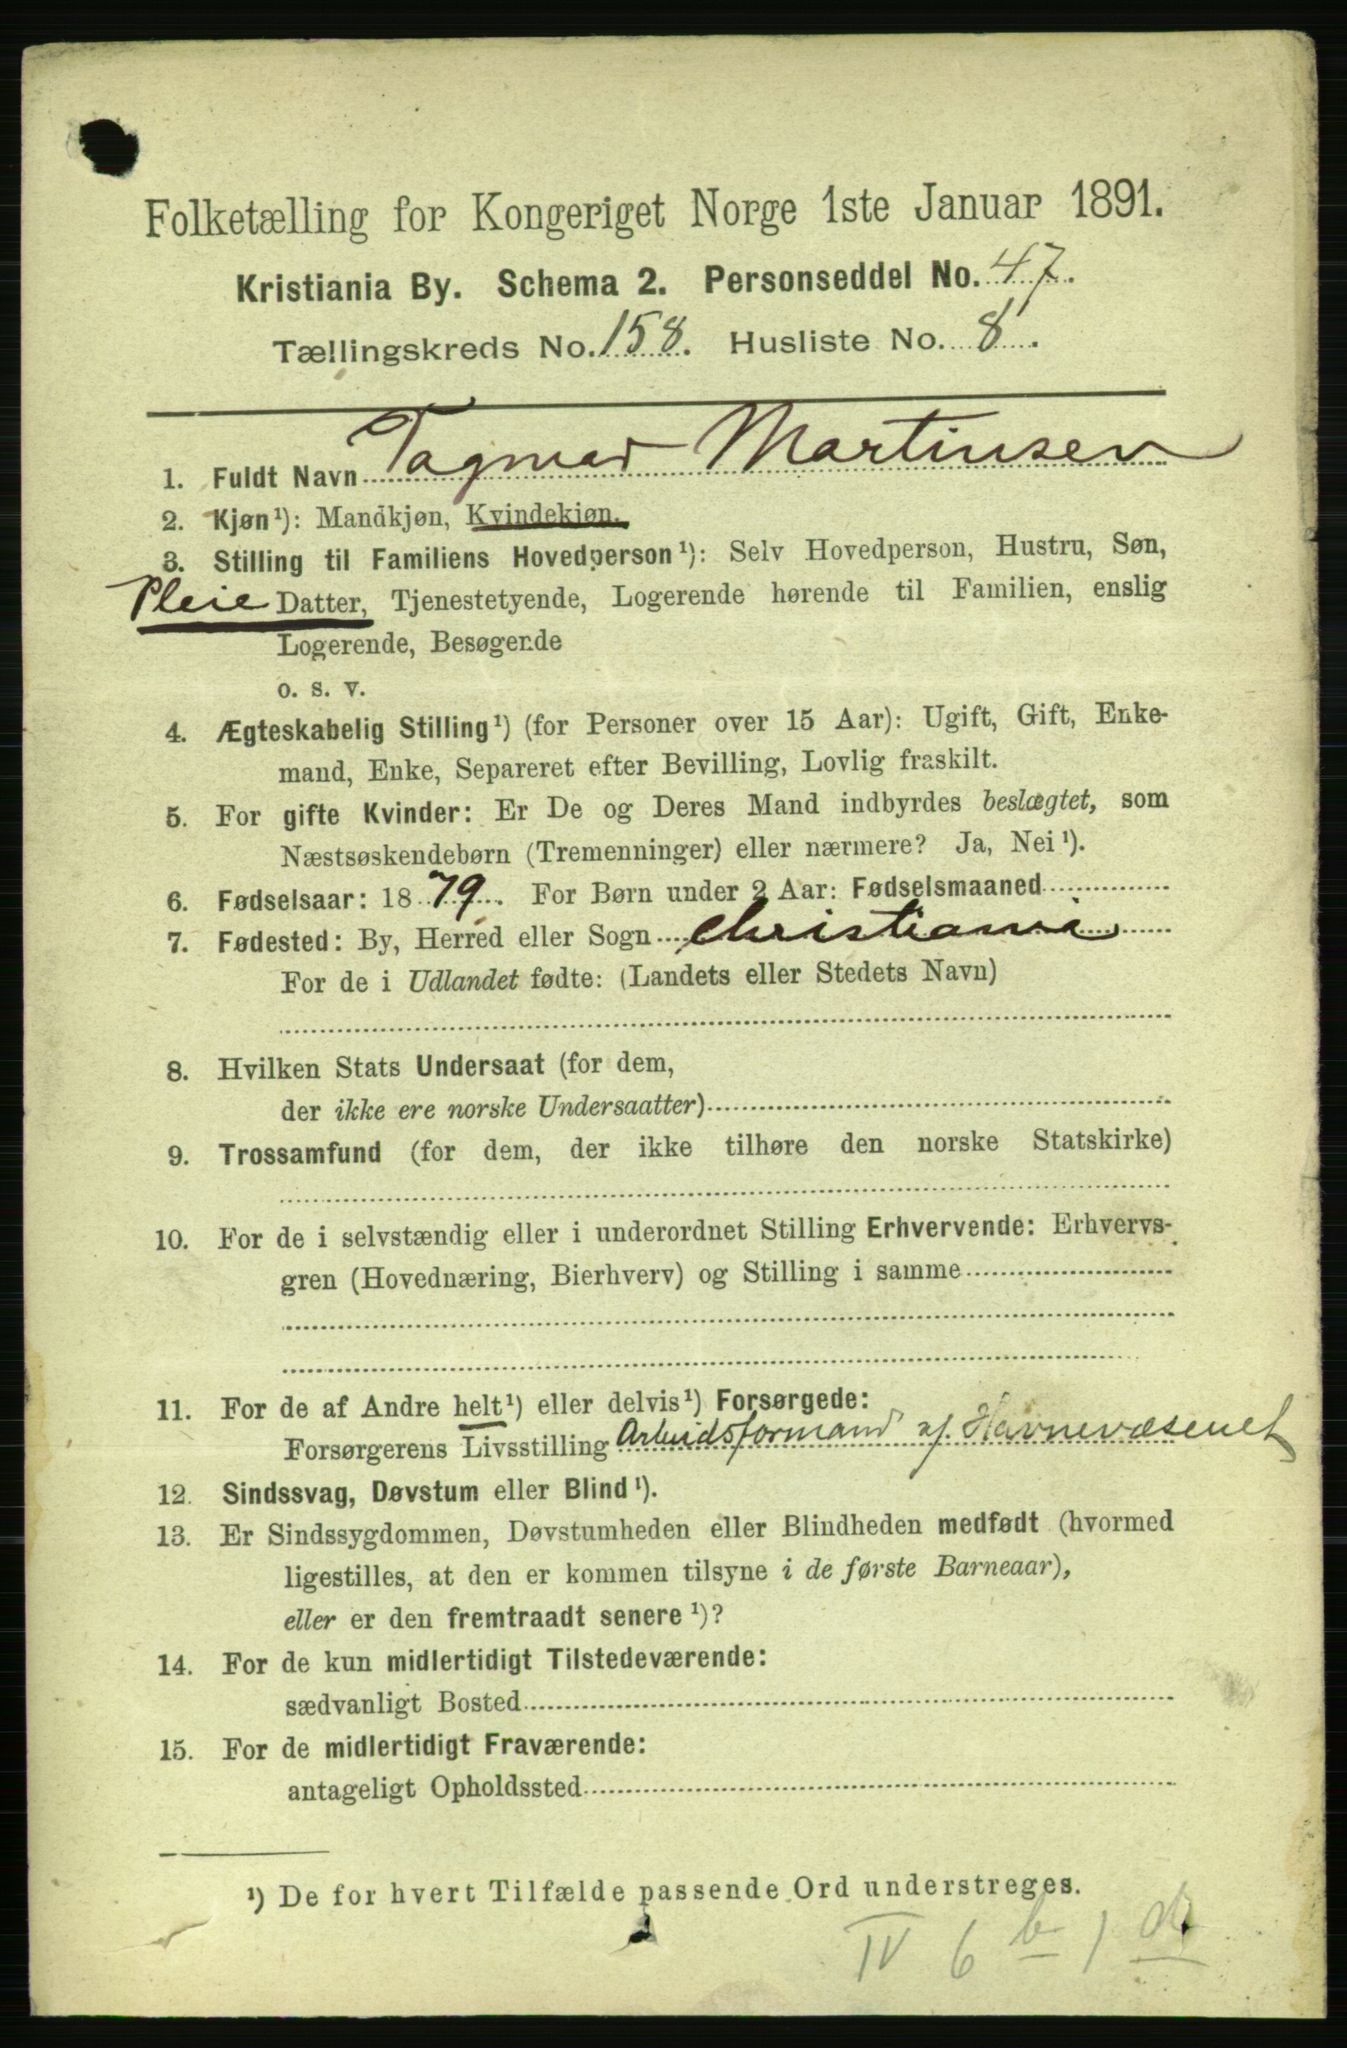 Folketælling for Kongeriget Norge 1ste Januar 1891.
Kristiania By. Schema 2. Personseddel No. 47.
Tællingskreds No. 158. Husliste No. 8.
1. Fuldt Navn Dagmar Martinsen
2. Kjøn¹): Mandkjøn, Kvindekjøn.
3. Stilling til Familiens Hovedperson¹): Selv Hovedperson, Hustru, Søn,
Pleie Datter, Tjenestetyende, Logerende hørende til Familien, enslig
Logerende, Besøgende
o. s. v.
4. Ægteskabelig Stilling¹) (for Personer over 15 Aar): Ugift, Gift, Enke-
mand, Enke, Separeret efter Bevilling, Lovlig fraskilt.
5. For gifte Kvinder: Er De og Deres Mand indbyrdes beslægtet, som
Næstsøskendebørn (Tremenninger) eller nærmere? Ja, Nei¹).
6. Fødselsaar: 1879. For Børn under 2 Aar: Fødselsmaaned
7. Fødested: By, Herred eller Sogn Christiania
For de i Udlandet fødte: (Landets eller Stedets Navn)
8. Hvilken Stats Undersaat (for dem,
der ikke ere norske Undersaatter)
9. Trossamfund (for dem, der ikke tilhøre den norske Statskirke)
10. For de i selvstændig eller i underordnet Stilling Erhvervende: Erhvervs-
gren (Hovednæring, Bierhverv) og Stilling i samme
11. For de af Andre helt¹) eller delvis¹) Forsørgede:
Forsørgerens Livsstilling Arbeidsformand v. Havnevæsenet
12. Sindssvag, Døvstum eller Blind¹).
13. Er Sindssygdommen, Døvstumheden eller Blindheden medfødt (hvormed
ligestilles, at den er kommen tilsyne i de første Barneaar),
eller er den fremtraadt senere¹)?
14. For de kun midlertidigt Tilstedeværende:
sædvanligt Bosted
15. For de midlertidigt Fraværende:
antageligt Opholdssted
¹) De for hvert Tilfælde passende Ord understreges.
IV 6 b 1 d